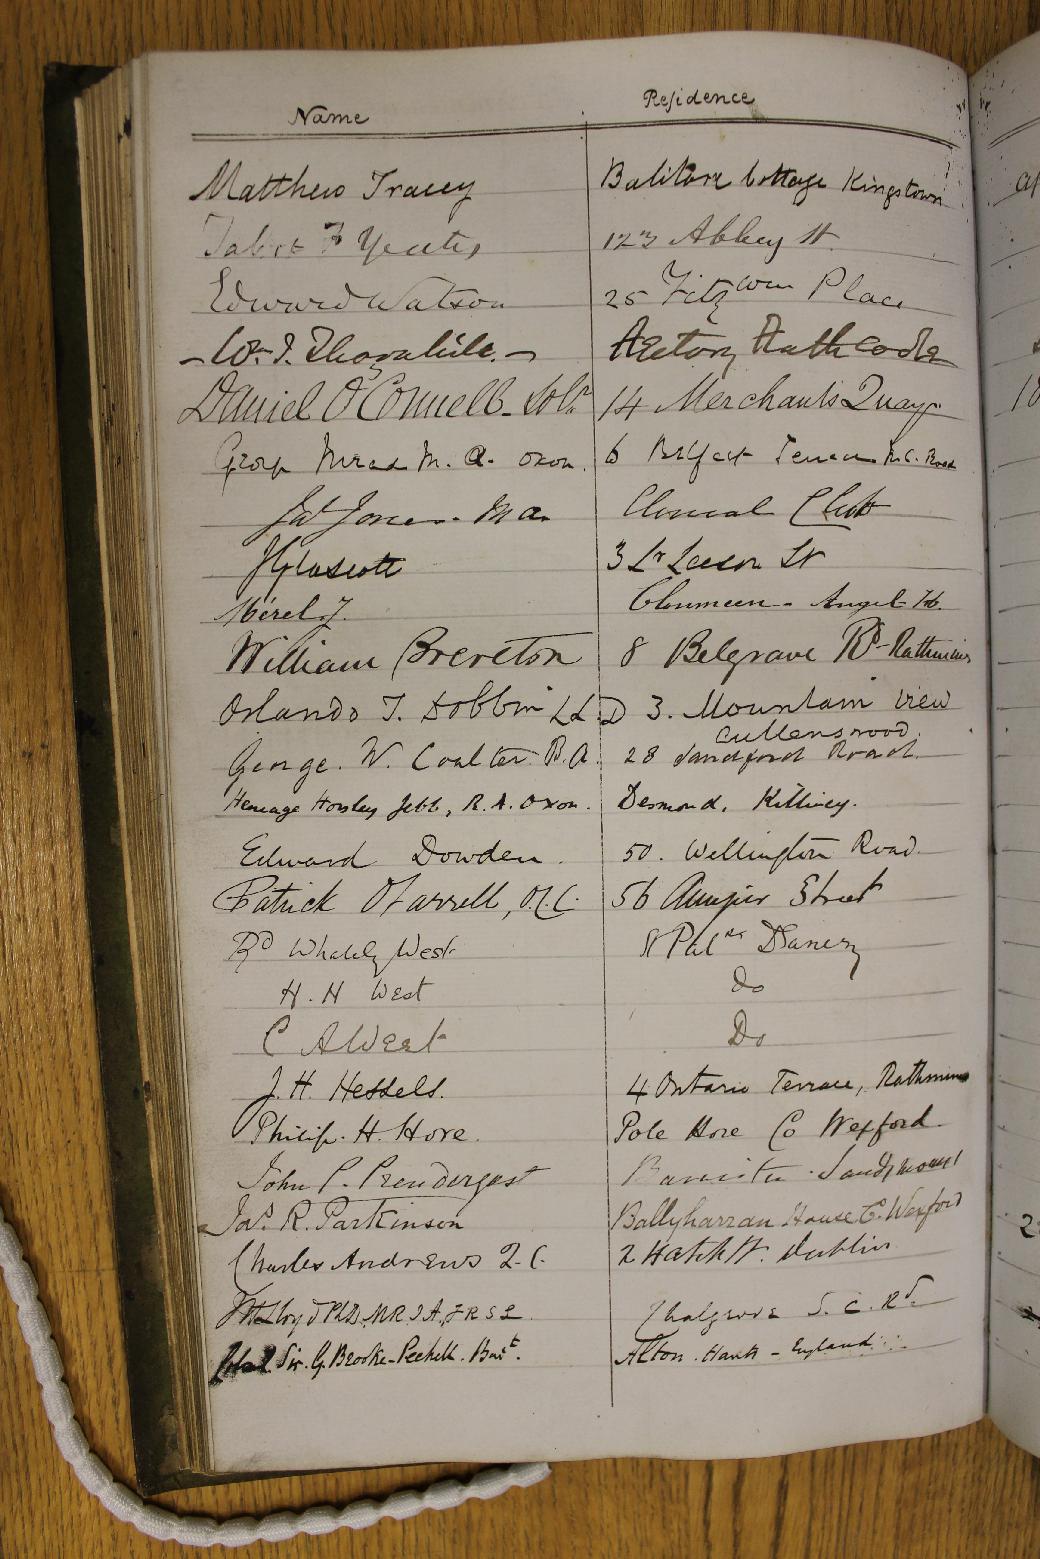 Name Residence
Matthew Tracey Balitore Cottage Kingstown
123 Abbey St.
Edward Watson 25 Fitzwm Place
Rathcoole
Daniel O'Connell Solr 14 Merchants Quay
M.A. Oxon. 6 Belfast Terrace N.C. Road
Jas Jones. M A. Clerical Club
J Glascott 3 Lr Leeson St
Clonmeen - Angel Ho.
William Brereton 8 Belgrave Rd - Rathmines
Orlando T. Dobbin LL.D 3. Mountain View
Cullenswood.
George. W. Coulter. B.A. 28 Sandford Road.
Heneage Horsley Jebb, B.A. Oxon. Desmond, Killiney.
Edward Dowden. 50. Wellington Road.
Patrick O'Farrell, 56 Aungier Street
Rd Whately West 8 Danery
H. H West Do
C A West Do
J. H. Hessels. 4 Ontario Terrace, Rathmines
Philip. H. Hore. Pole Hore Co Wexford
John P. Prendergast Sandymount
Jas. R. Parkinson Ballyharran House Co. Wexford
Charles Andrews Q.C. 2 Hatch St. Dublin
Lloyd PhD, MRIA, FRSL Chalgrove S. C. Rd.
Sir. G. Brooke-Pechell. Bart. Alton. Hants - England